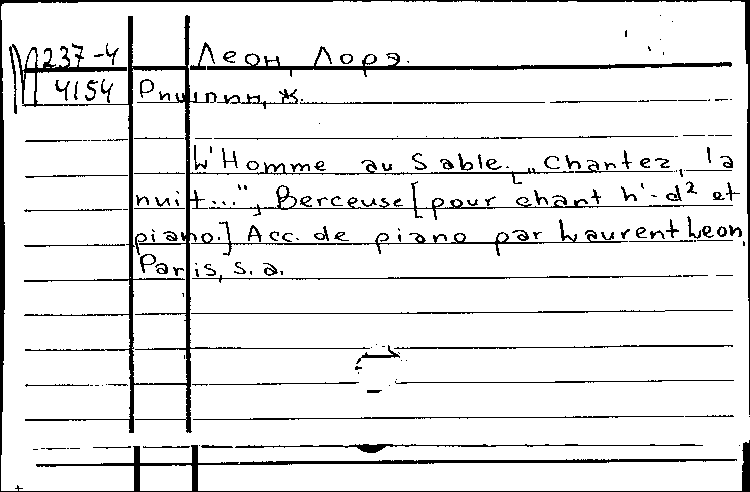 П237-4 Леон, Лорэ.
4154 Ришпин, Ж.
L'Homme au Sable. „Chantez, la
nuit...", Berceuse [pour chant h'-d² et
piano.] Acc. de piano par Laurent Leon
Paris, s. a.